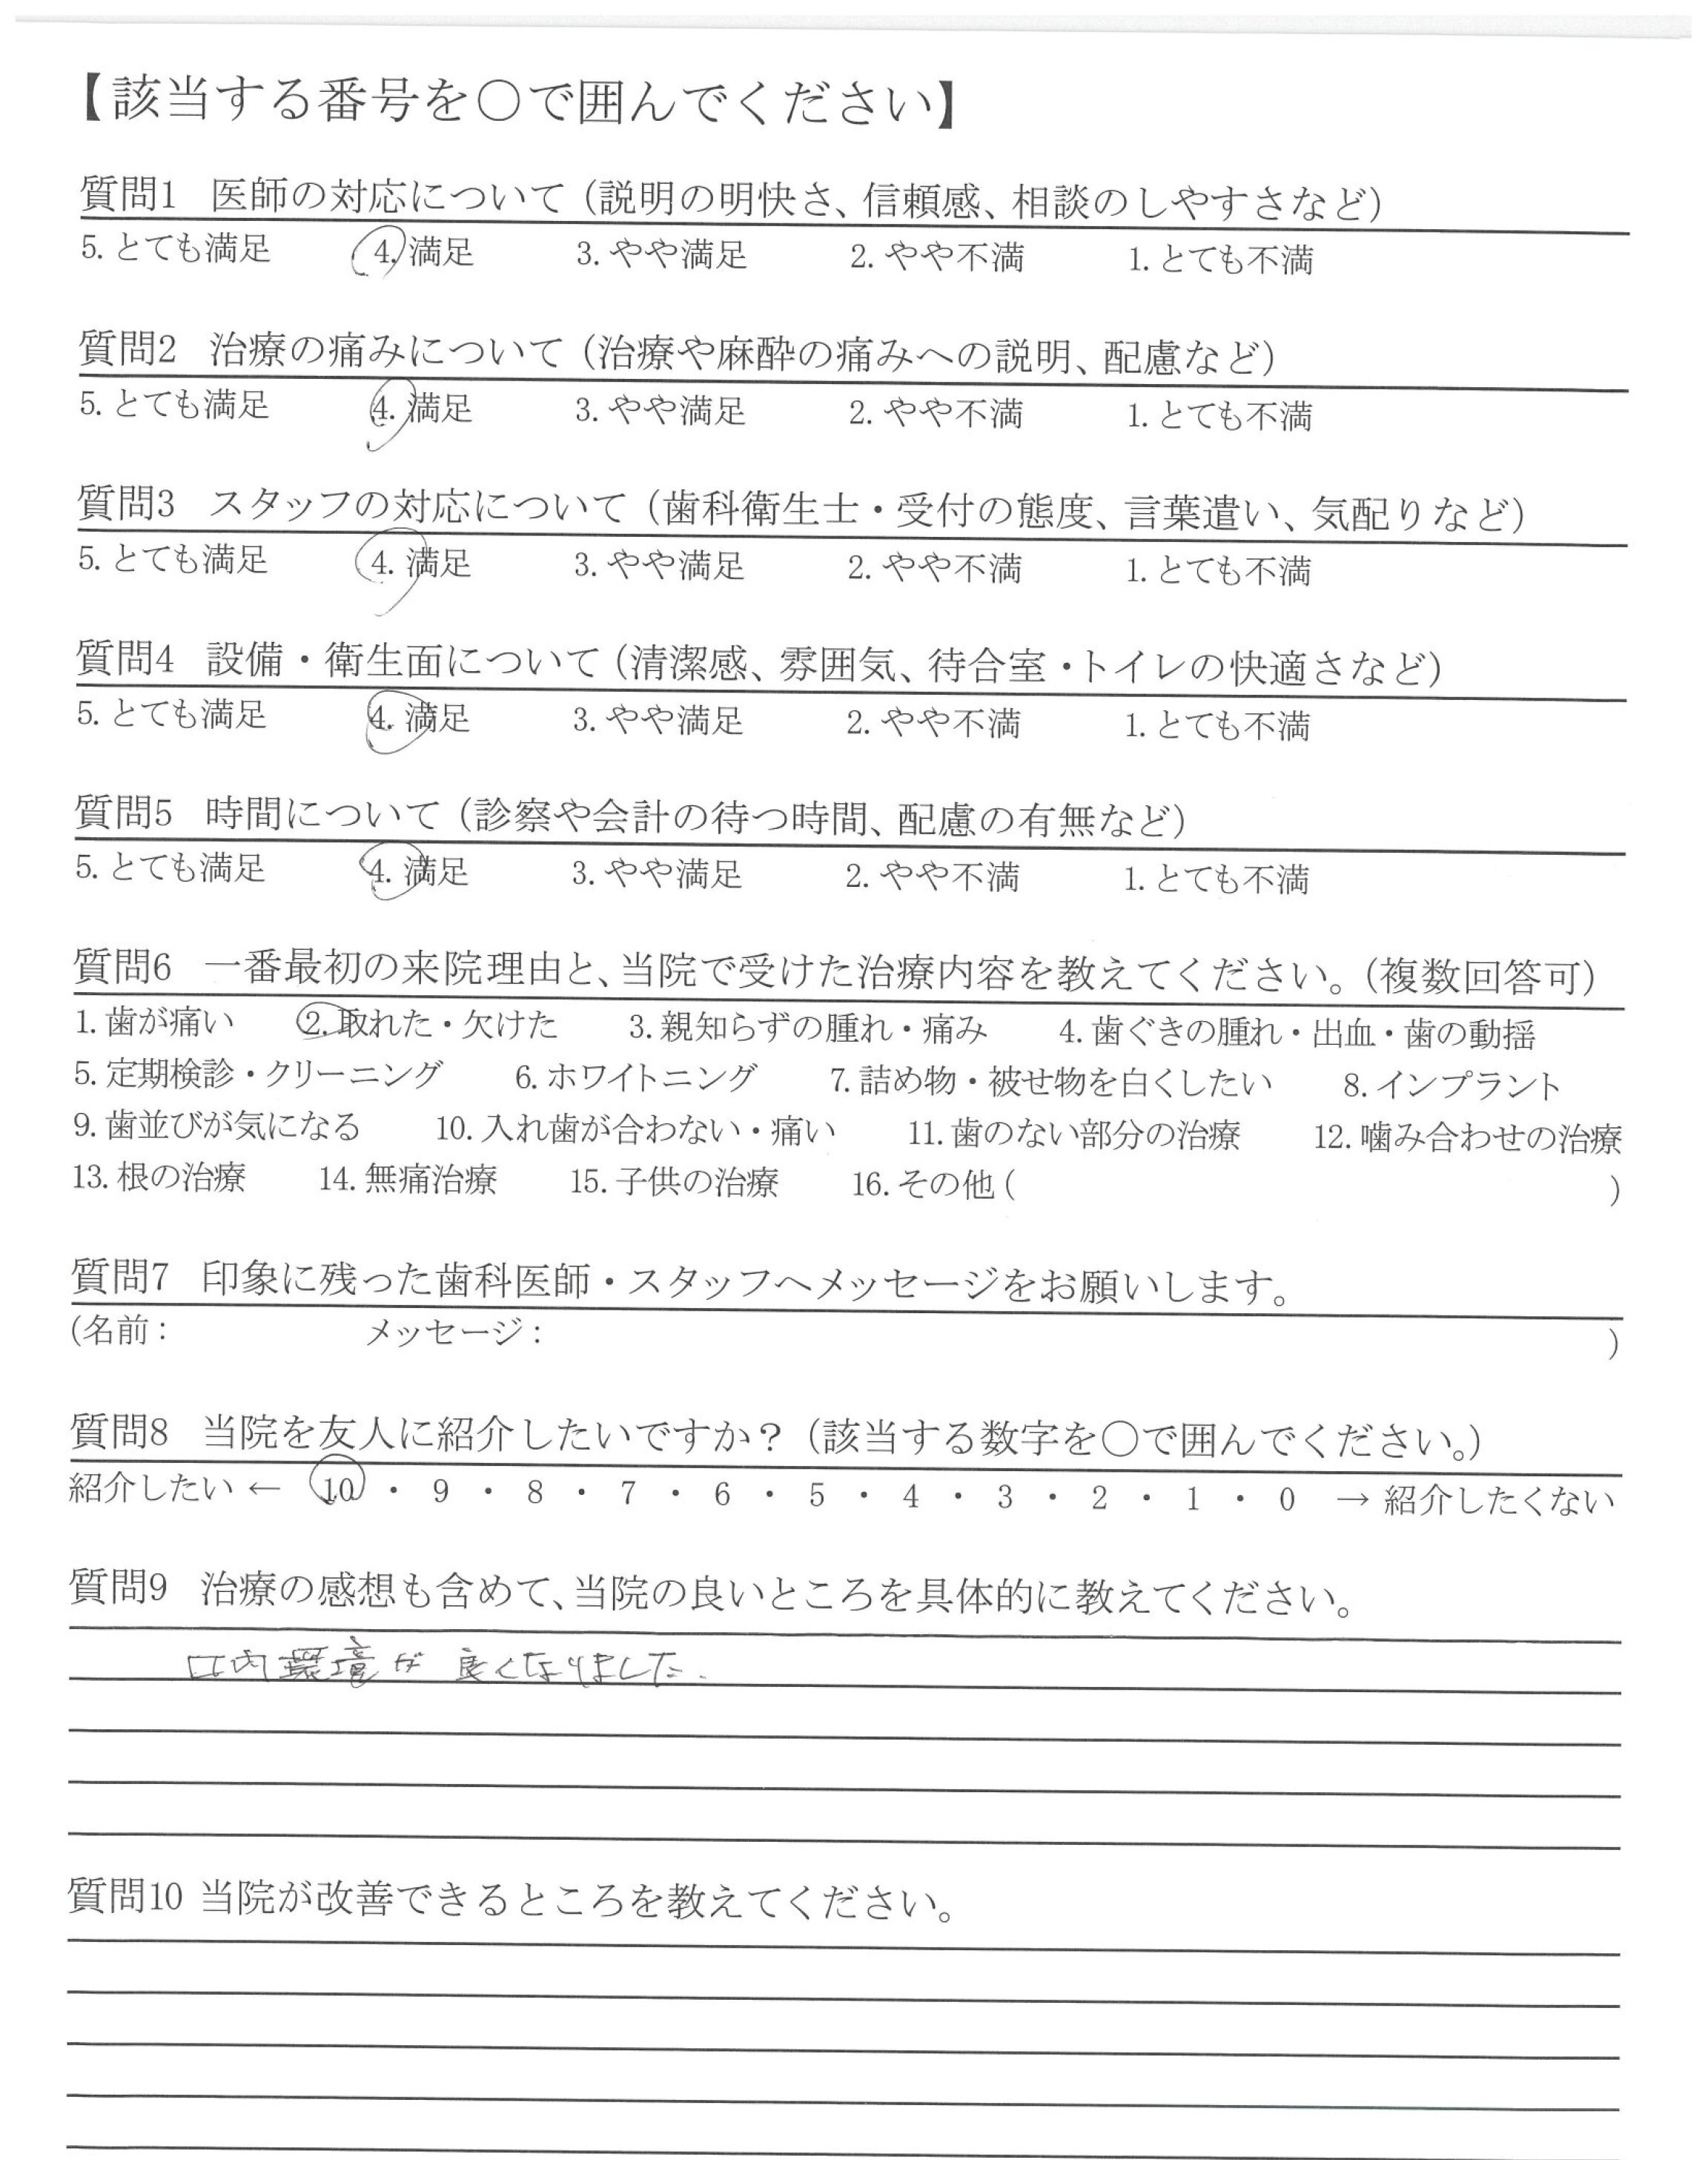 【該当する番号を〇で囲んでください】
質問1 医師の対応について（説明の明快さ、信頼感、相談のしやすさなど）
5. とても満足 4. 満足 3. やや満足 2. やや不満 1. とても不満
質問2 治療の痛みについて（治療や麻酔の痛みへの説明、配慮など）
5. とても満足 4. 満足 3. やや満足 2. やや不満 1. とても不満
質問3 スタッフの対応について（歯科衛生士・受付の態度、言葉遣い、気配りなど）
5. とても満足 4. 満足 3. やや満足 2. やや不満 1. とても不満
質問4 設備・衛生面について（清潔感、雰囲気、待合室・トイレの快適さなど）
5. とても満足 4. 満足 3. やや満足 2. やや不満 1. とても不満
質問5 時間について（診察や会計の待つ時間、配慮の有無など）
5. とても満足 4. 満足 3. やや満足 2. やや不満 1. とても不満
質問6 一番最初の来院理由と、当院で受けた治療内容を教えてください。（複数回答可）
1. 歯が痛い 2. 取れた・欠けた 3. 親知らずの腫れ・痛み 4. 歯ぐきの腫れ・出血・歯の動揺
5. 定期検診・クリーニング 6. ホワイトニング 7. 詰め物・被せ物を白くしたい 8. インプラント
9. 歯並びが気になる 10. 入れ歯が合わない・痛い 11. 歯のない部分の治療 12. 噛み合わせの治療
13. 根の治療 14. 無痛治療 15. 子供の治療 16. その他（ ）
質問7 印象に残った歯科医師・スタッフへメッセージをお願いします。
（名前： メッセージ： ）
質問8 当院を友人に紹介したいですか？（該当する数字を〇で囲んでください。）
紹介したい ← 10 ・ 9 ・ 8 ・ 7 ・ 6 ・ 5 ・ 4 ・ 3 ・ 2 ・ 1 ・ 0 → 紹介したくない
質問9 治療の感想も含めて、当院の良いところを具体的に教えてください。
口内環境が良くなりました.
質問10 当院が改善できるところを教えてください。